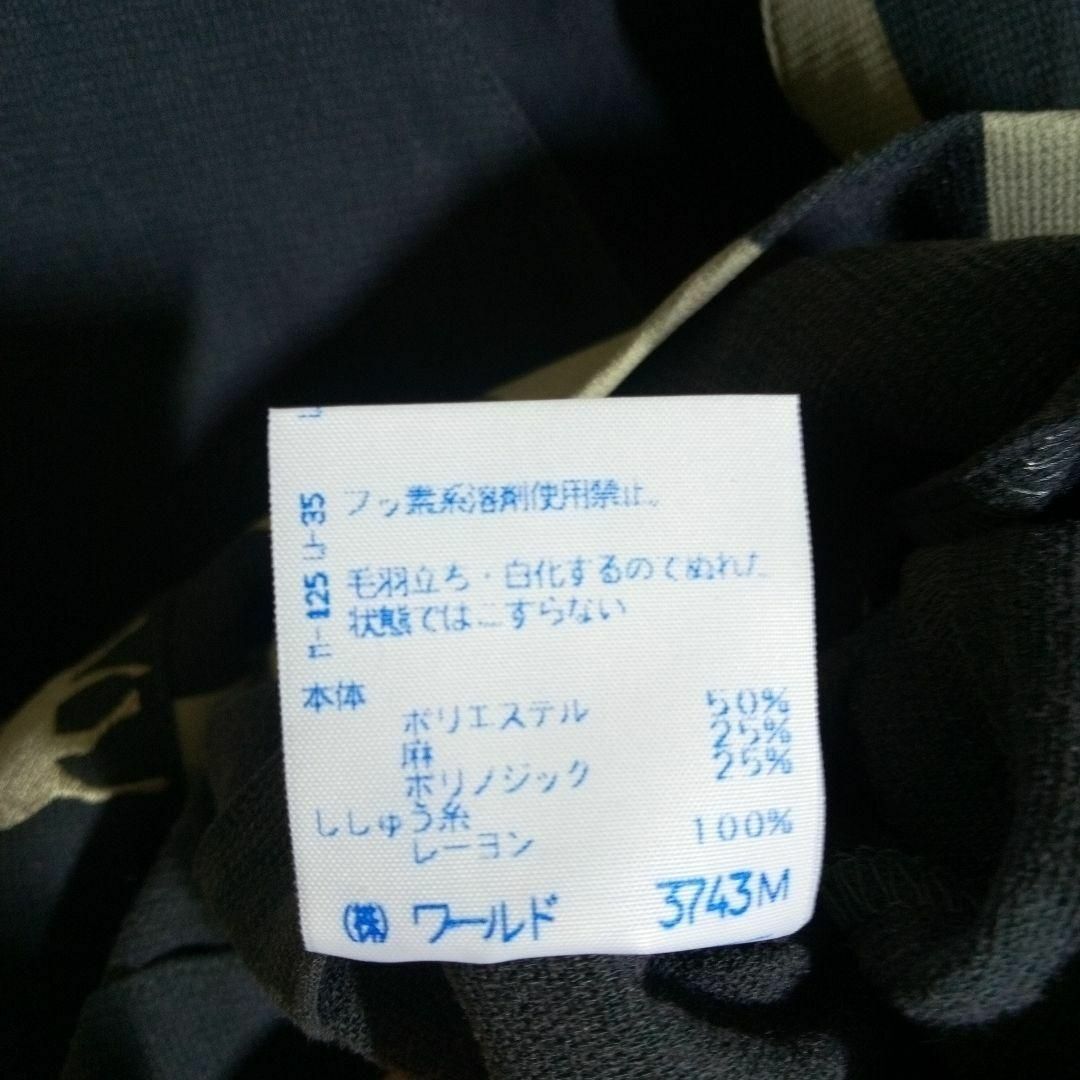 フッ素系溶剤使用禁止。
毛羽立ち・白化するのでぬれた
状態ではこすらない
本体
ポリエステル 50%
麻 25%
ポリノジック 25%
ししゅう糸
レーヨン 100%
(株) ワールド 3743M
125 リ-35